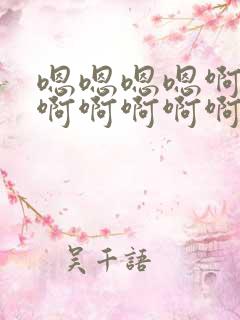 嗯嗯嗯嗯啊
啊啊啊啊啊
吴千語